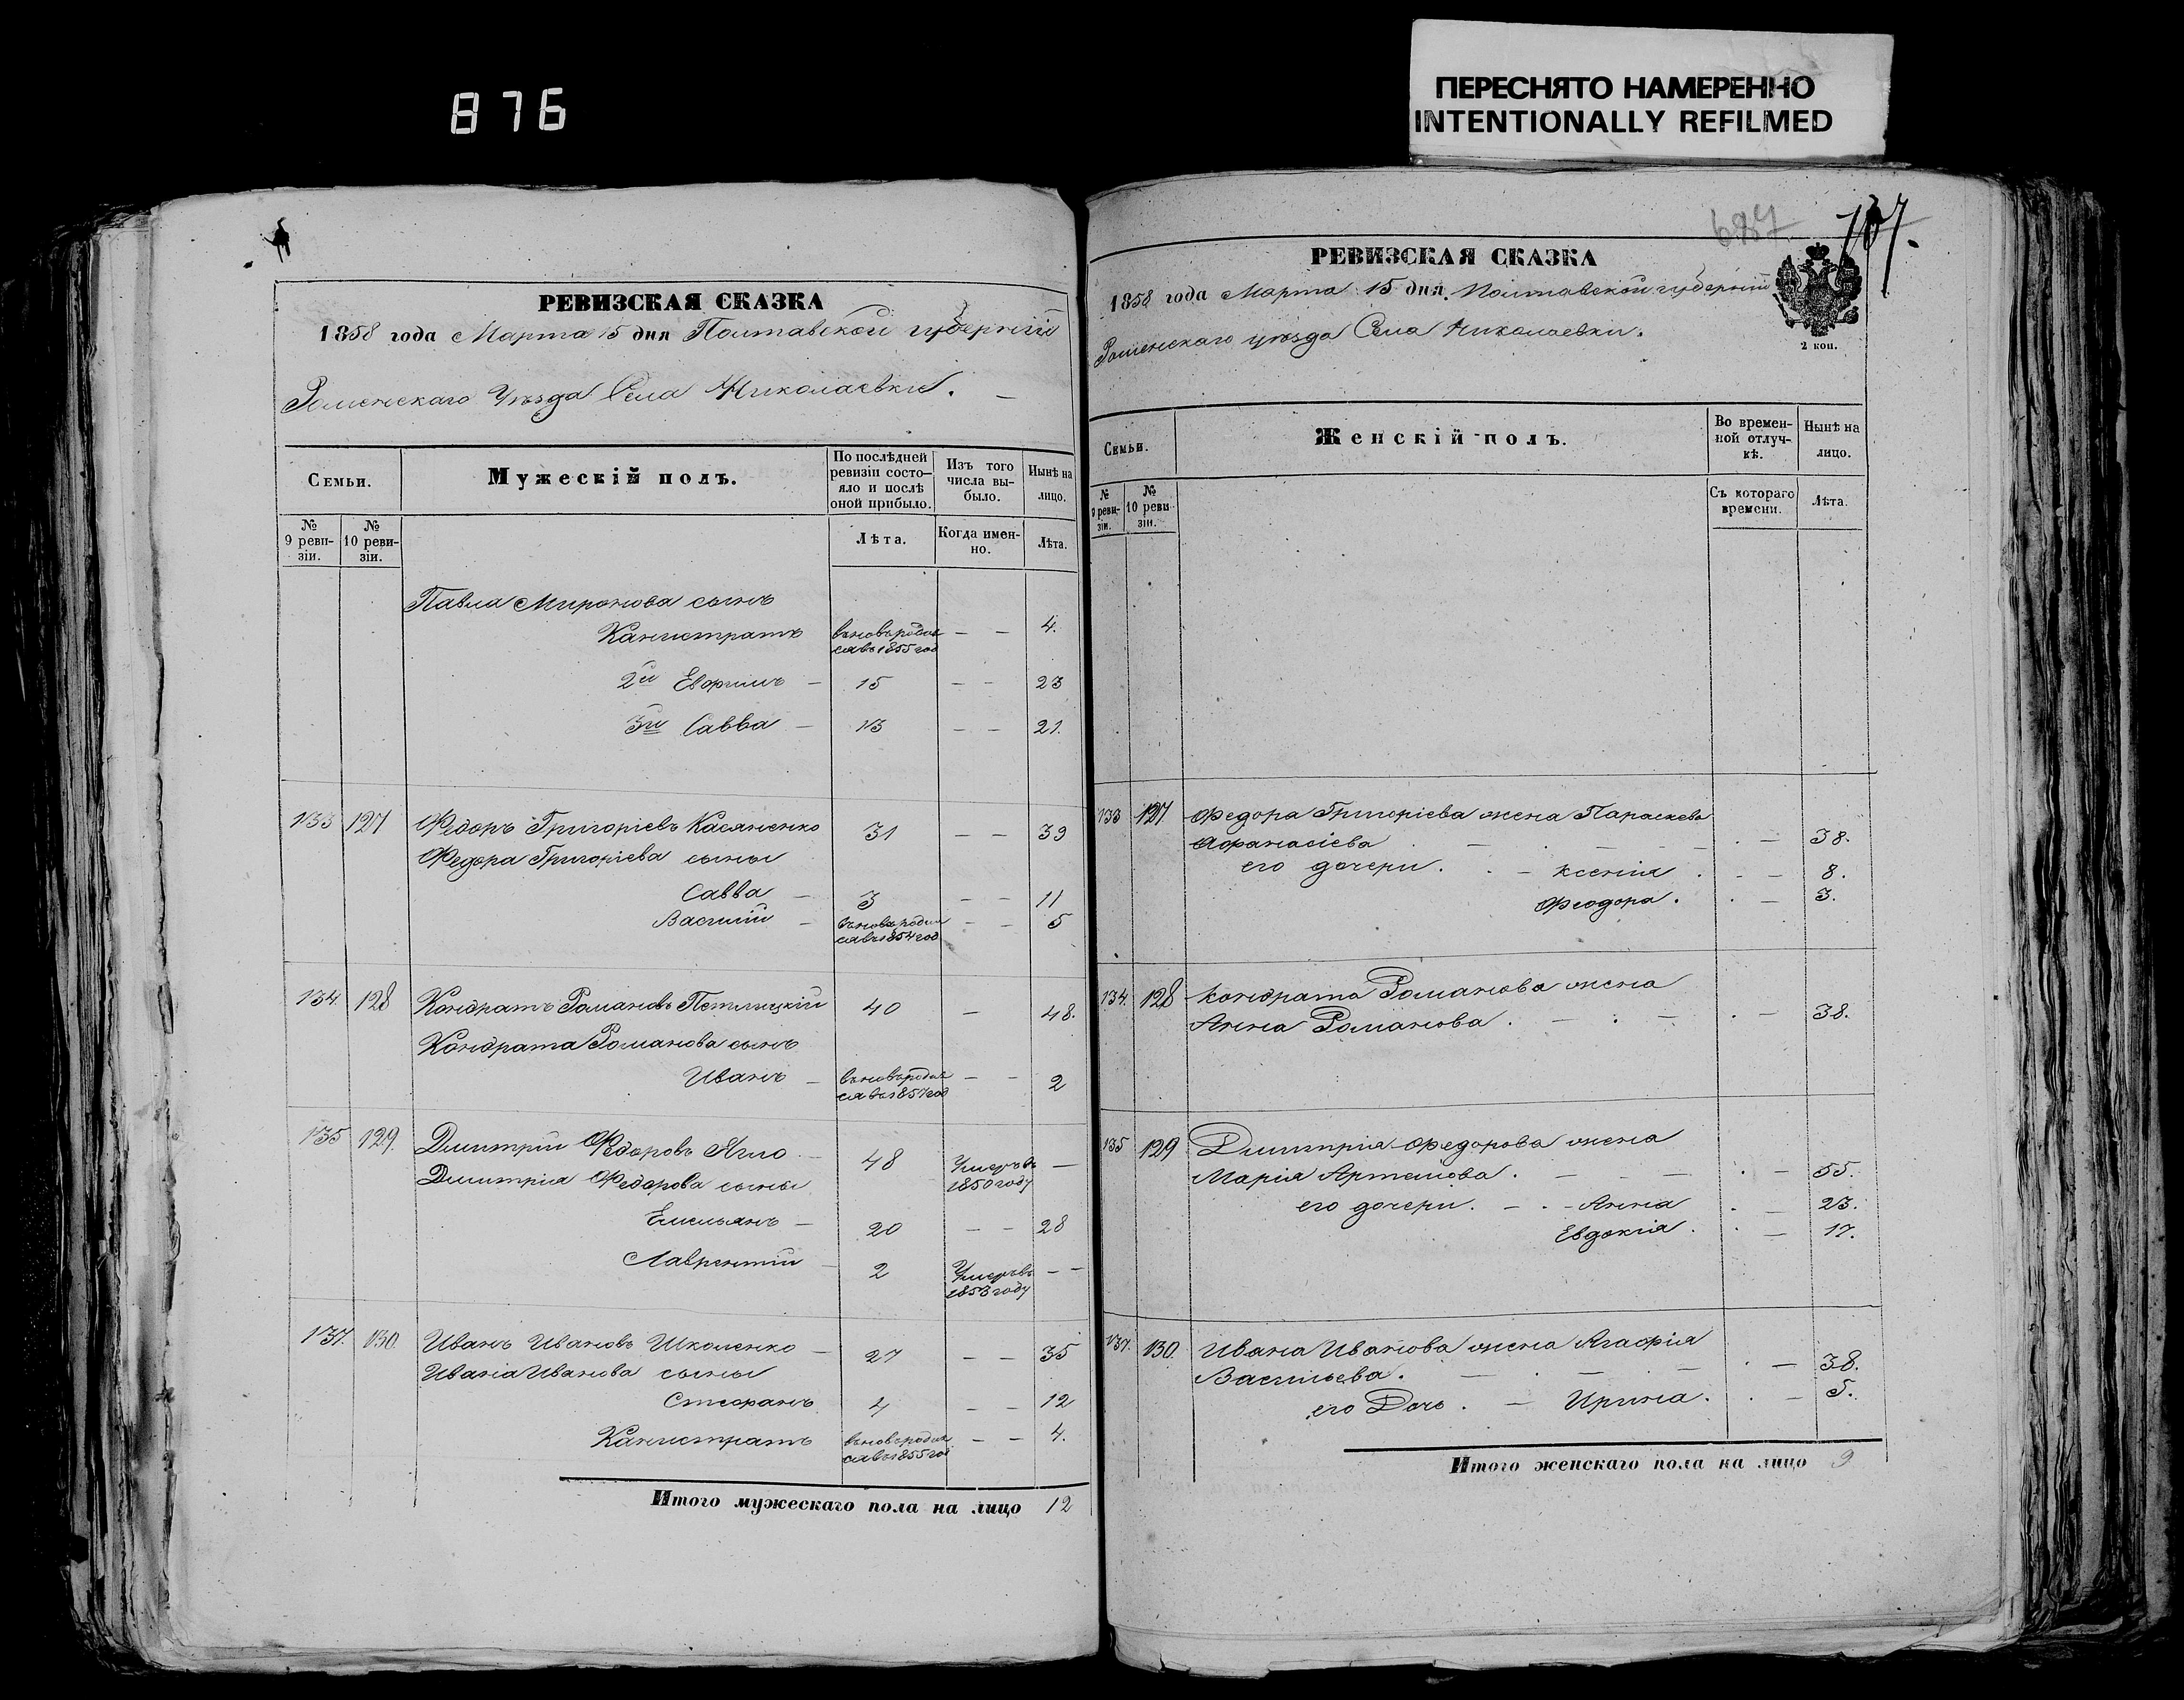 876
ПЕРЕСНЯТО НАМЕРЕННО
INTENTIONALLY REFILMED
РЕВИЗСКАЯ СКАЗКА
1858 года Марта 15 дня Полтавской губерніи
Роменскаго Уѣзда Села Николаевки.
Семьи.
Мужескій полъ.
По послѣдней ревизіи состо-
яло и послѣ
оной прибыло.
Изъ того
числа вы-
было.
Нынѣ на
лицо.
№
9 реви-
зіи.
№
10 реви-
зіи.
Лѣта.
Когда имен-
но.
Лѣта.
Павла Миронова сынъ
Каністратъ вновь родил - - 4.
ся въ 1855 год
2й Евфимъ - 15 - - 23
3й Савва - 13 - - 21.
133 127 Федоръ Григоріевъ Касяненко 31 - - 39
Федора Григоріева сыны
Савва - 3 - - 11
Василій - вновь родил - - 5
ся въ 1854 год
134 128 Кондратъ Романовъ 40 - 48.
Кондрата Романова сынъ
Иванъ - вновь родил - - 2
ся въ 1857 год
135 129. Дмитрій Федоровъ Ягло - 48 Умеръ въ -
1850 году
Дмитрія Федорова сыны
Емельянъ - 20 - - 28
Лаврентій - 2 Умеръ въ - -
1853 году
137. 130. Иванъ Ивановъ Школенко - 27 - - 35
Ивана Иванова сыны
Стефанъ 4 - - 12
Каністратъ вновь родил - - 4.
ся въ 1855 год
Итого мужескаго пола на лицо 12
687
РЕВИЗСКАЯ СКАЗКА
1858 года Марта 15 дня Полтавской губерніи
Роменскаго уѣзда Села Николаевки.
2 коп.
Семьи.
Женскій полъ.
Во времен-
ной отлуч-
кѣ.
Нынѣ на
лицо.
№
9 реви-
зіи.
№
10 реви-
зіи.
Съ котораго
времени.
Лѣта.
133 127 Федора Григоріева жена Параскева
Афанасіева - - 38.
его дочери. - Ксенія. - - 8.
Феодора. - 3.
134. 128 Кондрата Романова жена
Анна Романова. - - 38.
135 129 Дмитрія Федорова жена
Марія Артемова. - - 55.
его дочери. - Анна - 23.
Евдокія. - 17.
137. 130. Ивана Иванова жена Агафія
Васильева. - - 38.
его Дочь. - Ирина. - 5.
Итого женскаго пола на лицо 9